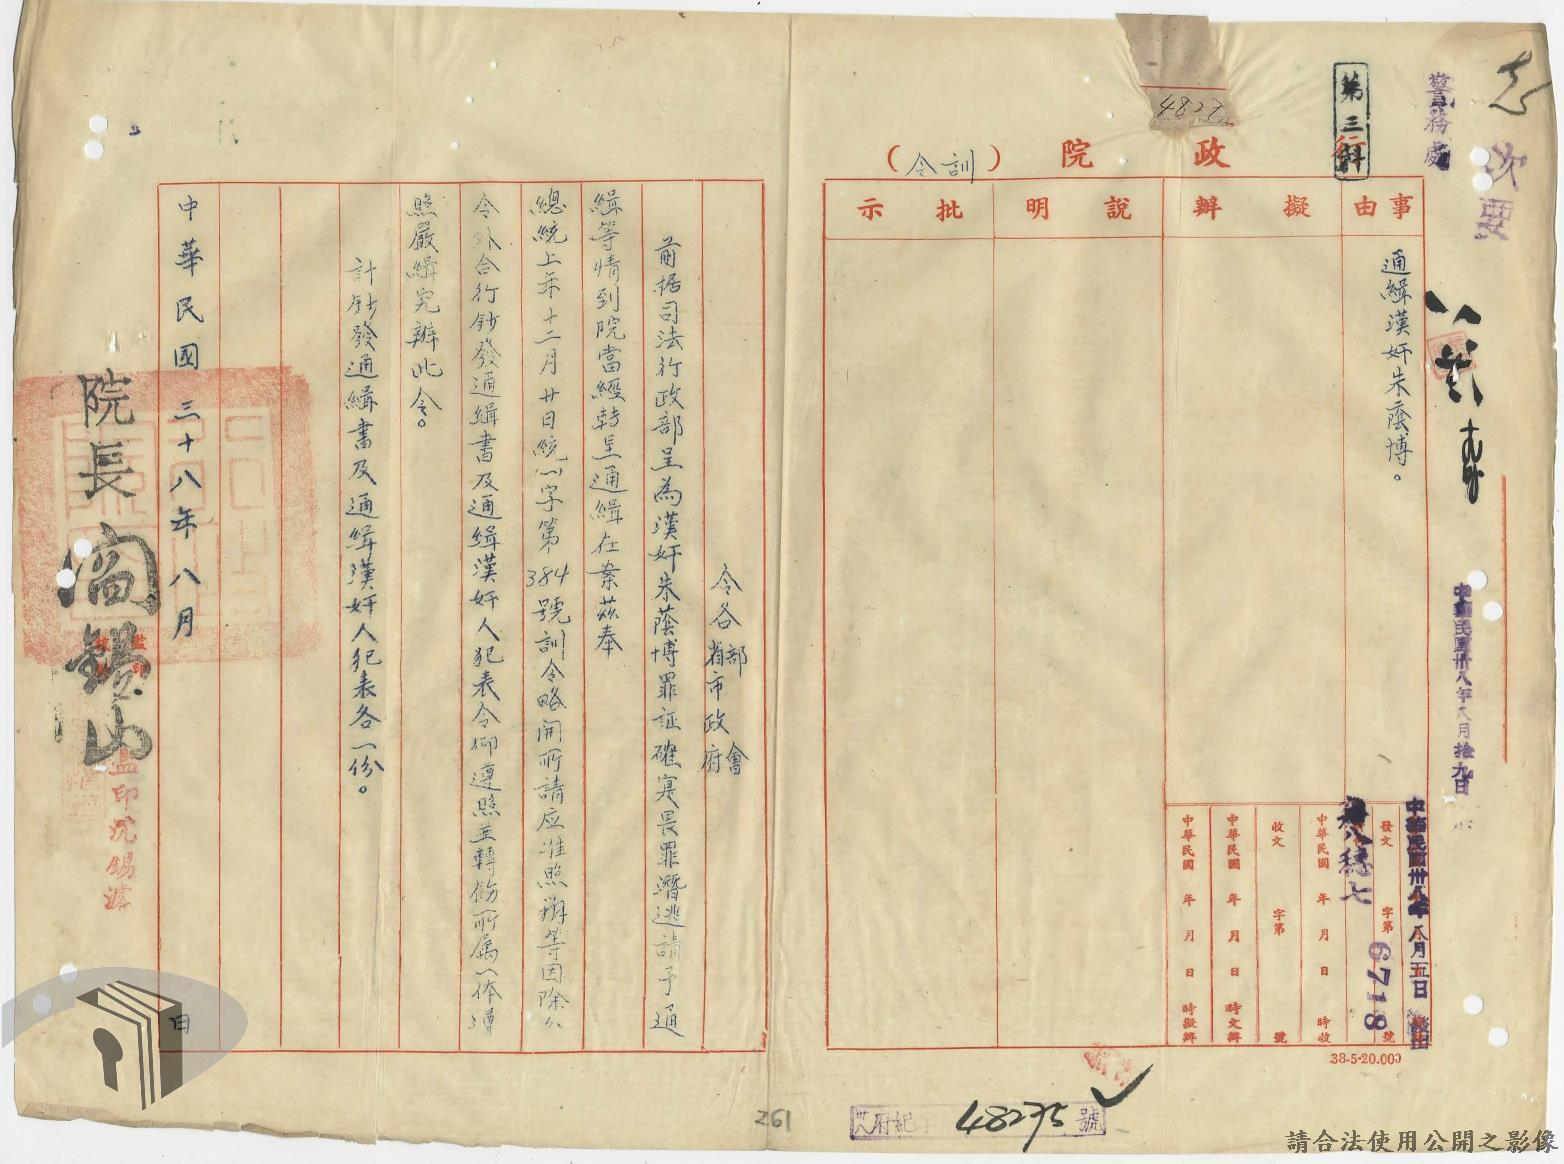 次要
警務處
第三科
4827
行政院（訓令）
事由
擬辦
說明
批示
通緝漢奸朱蔭博。
中華民國卅八年八月拾九日
中華民國卅八年八月五日
發文
字第
6718
號
卅八穗七
中華民國 年 月 日 時收
收文 字第 號
中華民國 年 月 日 時文辦
中華民國 年 月 日 時擬辦
38-5-20.000
卅八府紀字 48275 號
261
令各部會
省市政府
前據司法行政部呈為漢奸朱蔭博罪証確寔畏罪潛逃請予通
緝等情到院當經轉呈通緝在案茲奉
總統上年十二月廿日統㈠字第384號訓令略開所請应准照辦等因除分
令外合行鈔發通緝書及通緝漢奸人犯表令仰遵照並轉飭所属一体遵
照嚴緝究辦此令。
計鈔發通緝書及通緝漢奸人犯表各一份。
中華民國三十八年八月 日
院長閻錫山
監印沈錫
請合法使用公開之影像